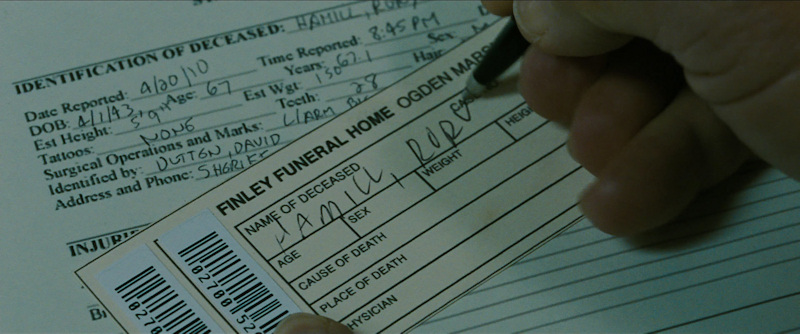 IDENTIFICATION OF DECEASED: HAMILL, RORY
Date Reported: 4/20/10 Time Reported: 8:45 PM
DOB: 4/1/43 Age: 67 Years: 67.1 Sex:
Est Height: 5'9" Est Wgt: 150 Hair
Tattoos: NONE Teeth: 28
Surgical Operations and Marks: L/ARM
Identified by: DUTTON, DAVID
Address and Phone: SHERIFF
INJURIE
FINLEY FUNERAL HOME OGDEN MARR
NAME OF DECEASED
HAMILL, ROR
AGE SEX WEIGHT HEI
CAUSE OF DEATH
PLACE OF DEATH
HYSICIAN